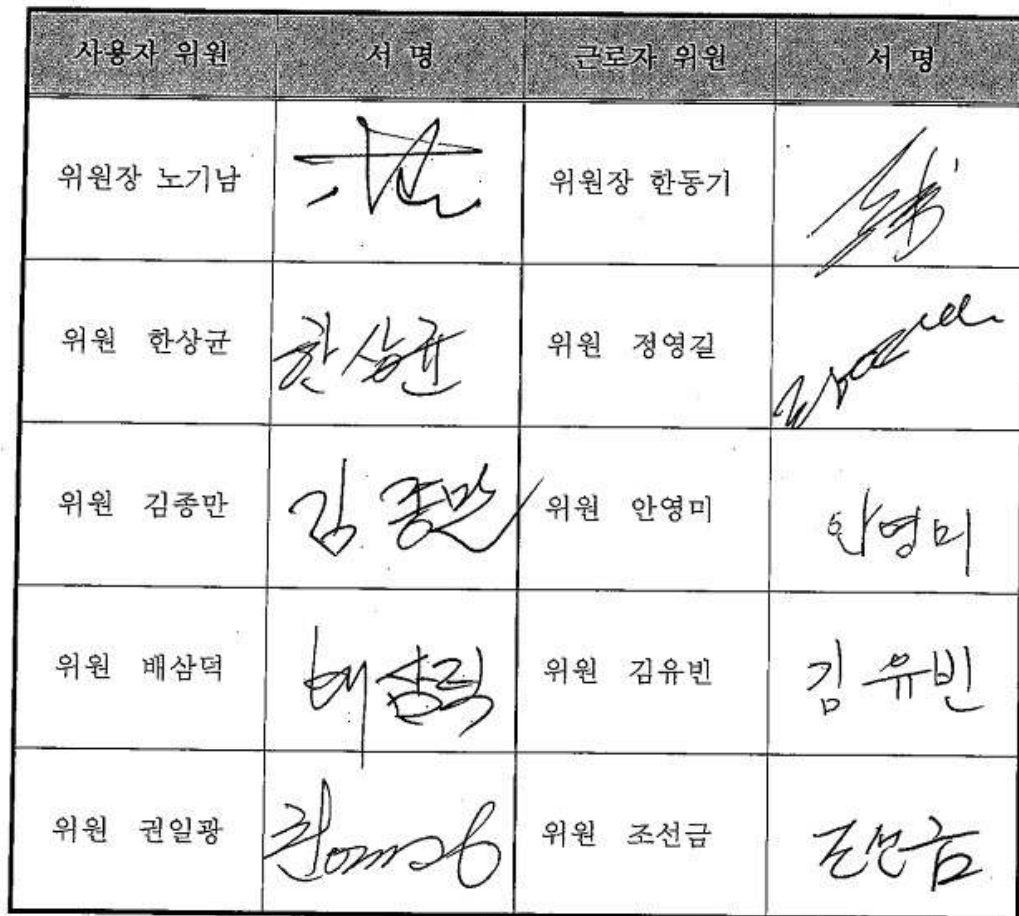 사용자 위원 서 명 근로자 위원 서 명
위원장 노기남 위원장 한동기
위원 한상균 한상균 위원 정영길
위원 김종만 김종만 위원 안영미 안영미
위원 배삼덕 배삼덕 위원 김유빈 김유빈
위원 권일광 위원 조선금 조선금